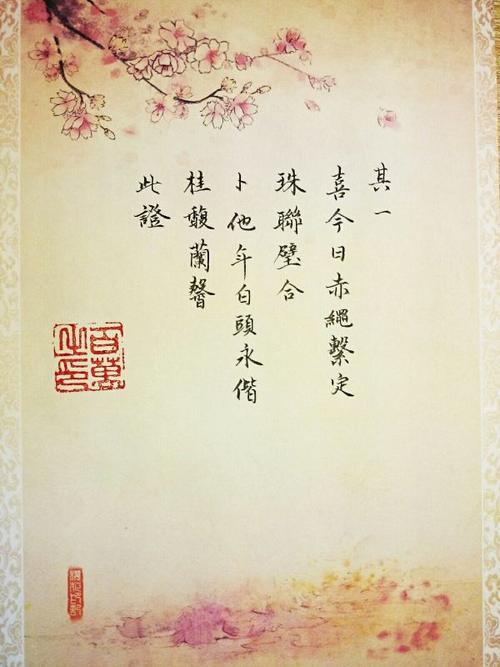 其一
喜今日赤繩繫定
珠聯璧合
卜他年白頭永偕
桂馥蘭馨
此證
百萬之印